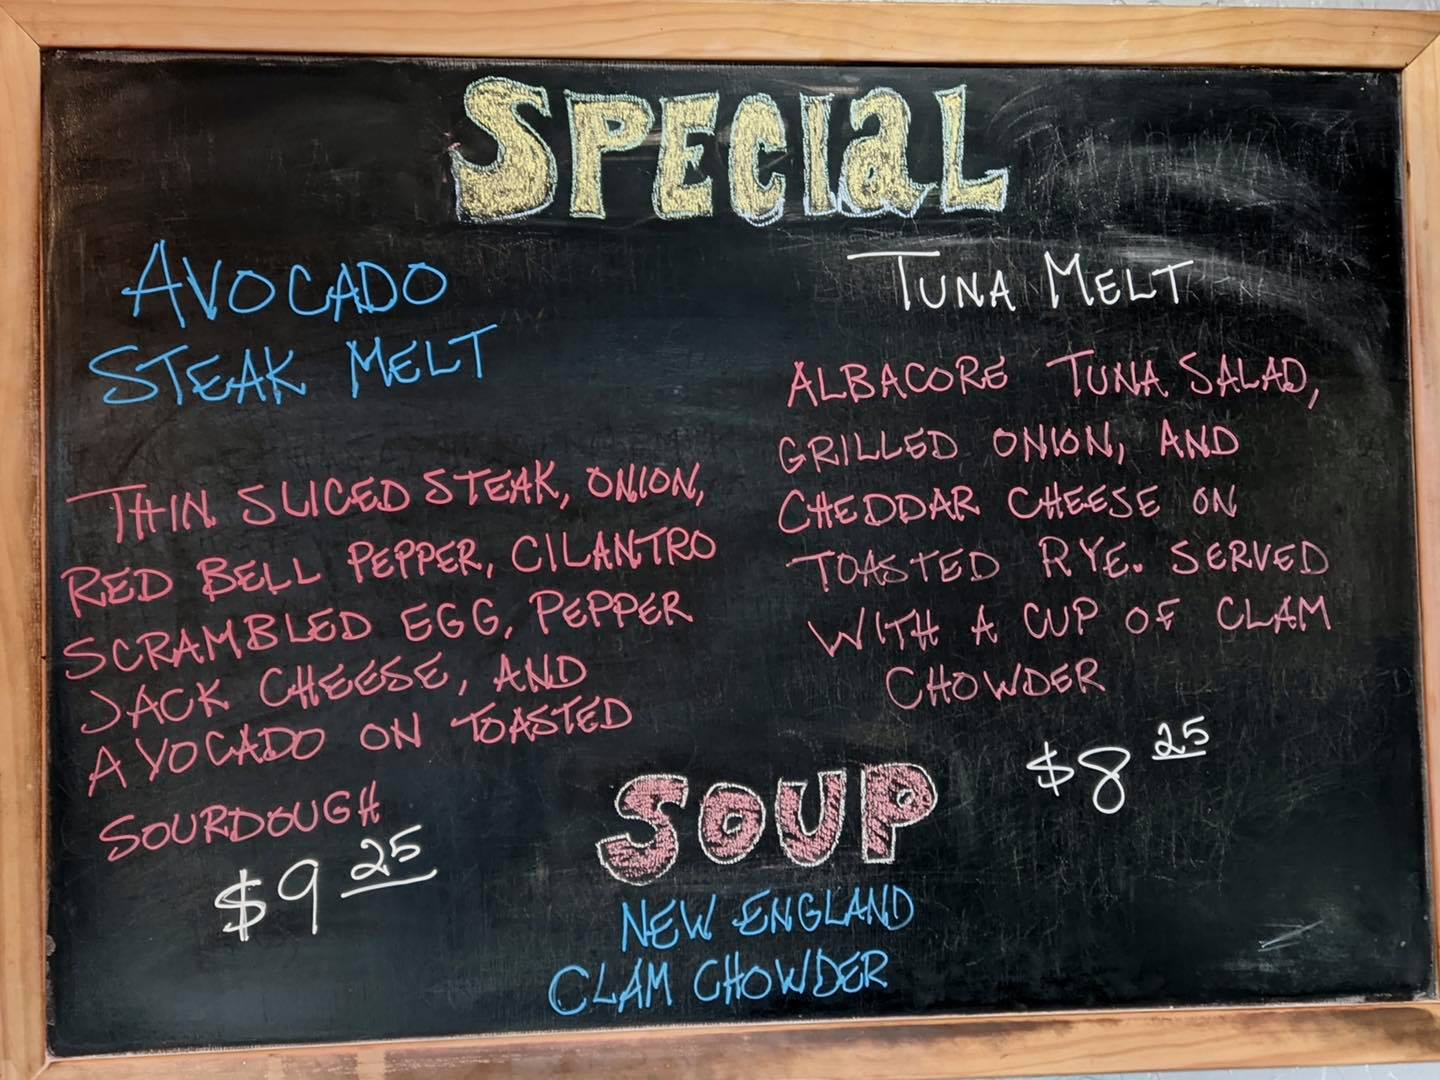 SPECIAL
AVOCADO
STEAK MELT
THIN SLICED STEAK, ONION,
RED BELL PEPPER, CILANTRO
SCRAMBLED EGG, PEPPER
JACK CHEESE, AND
AVOCADO ON TOASTED
SOURDOUGH
$9 25
TUNA MELT
ALBACORE TUNA SALAD,
GRILLED ONION, AND
CHEDDAR CHEESE ON
TOASTED RYE. SERVED
WITH A CUP OF CLAM
CHOWDER
$8 25
SOUP
NEW ENGLAND
CLAM CHOWDER